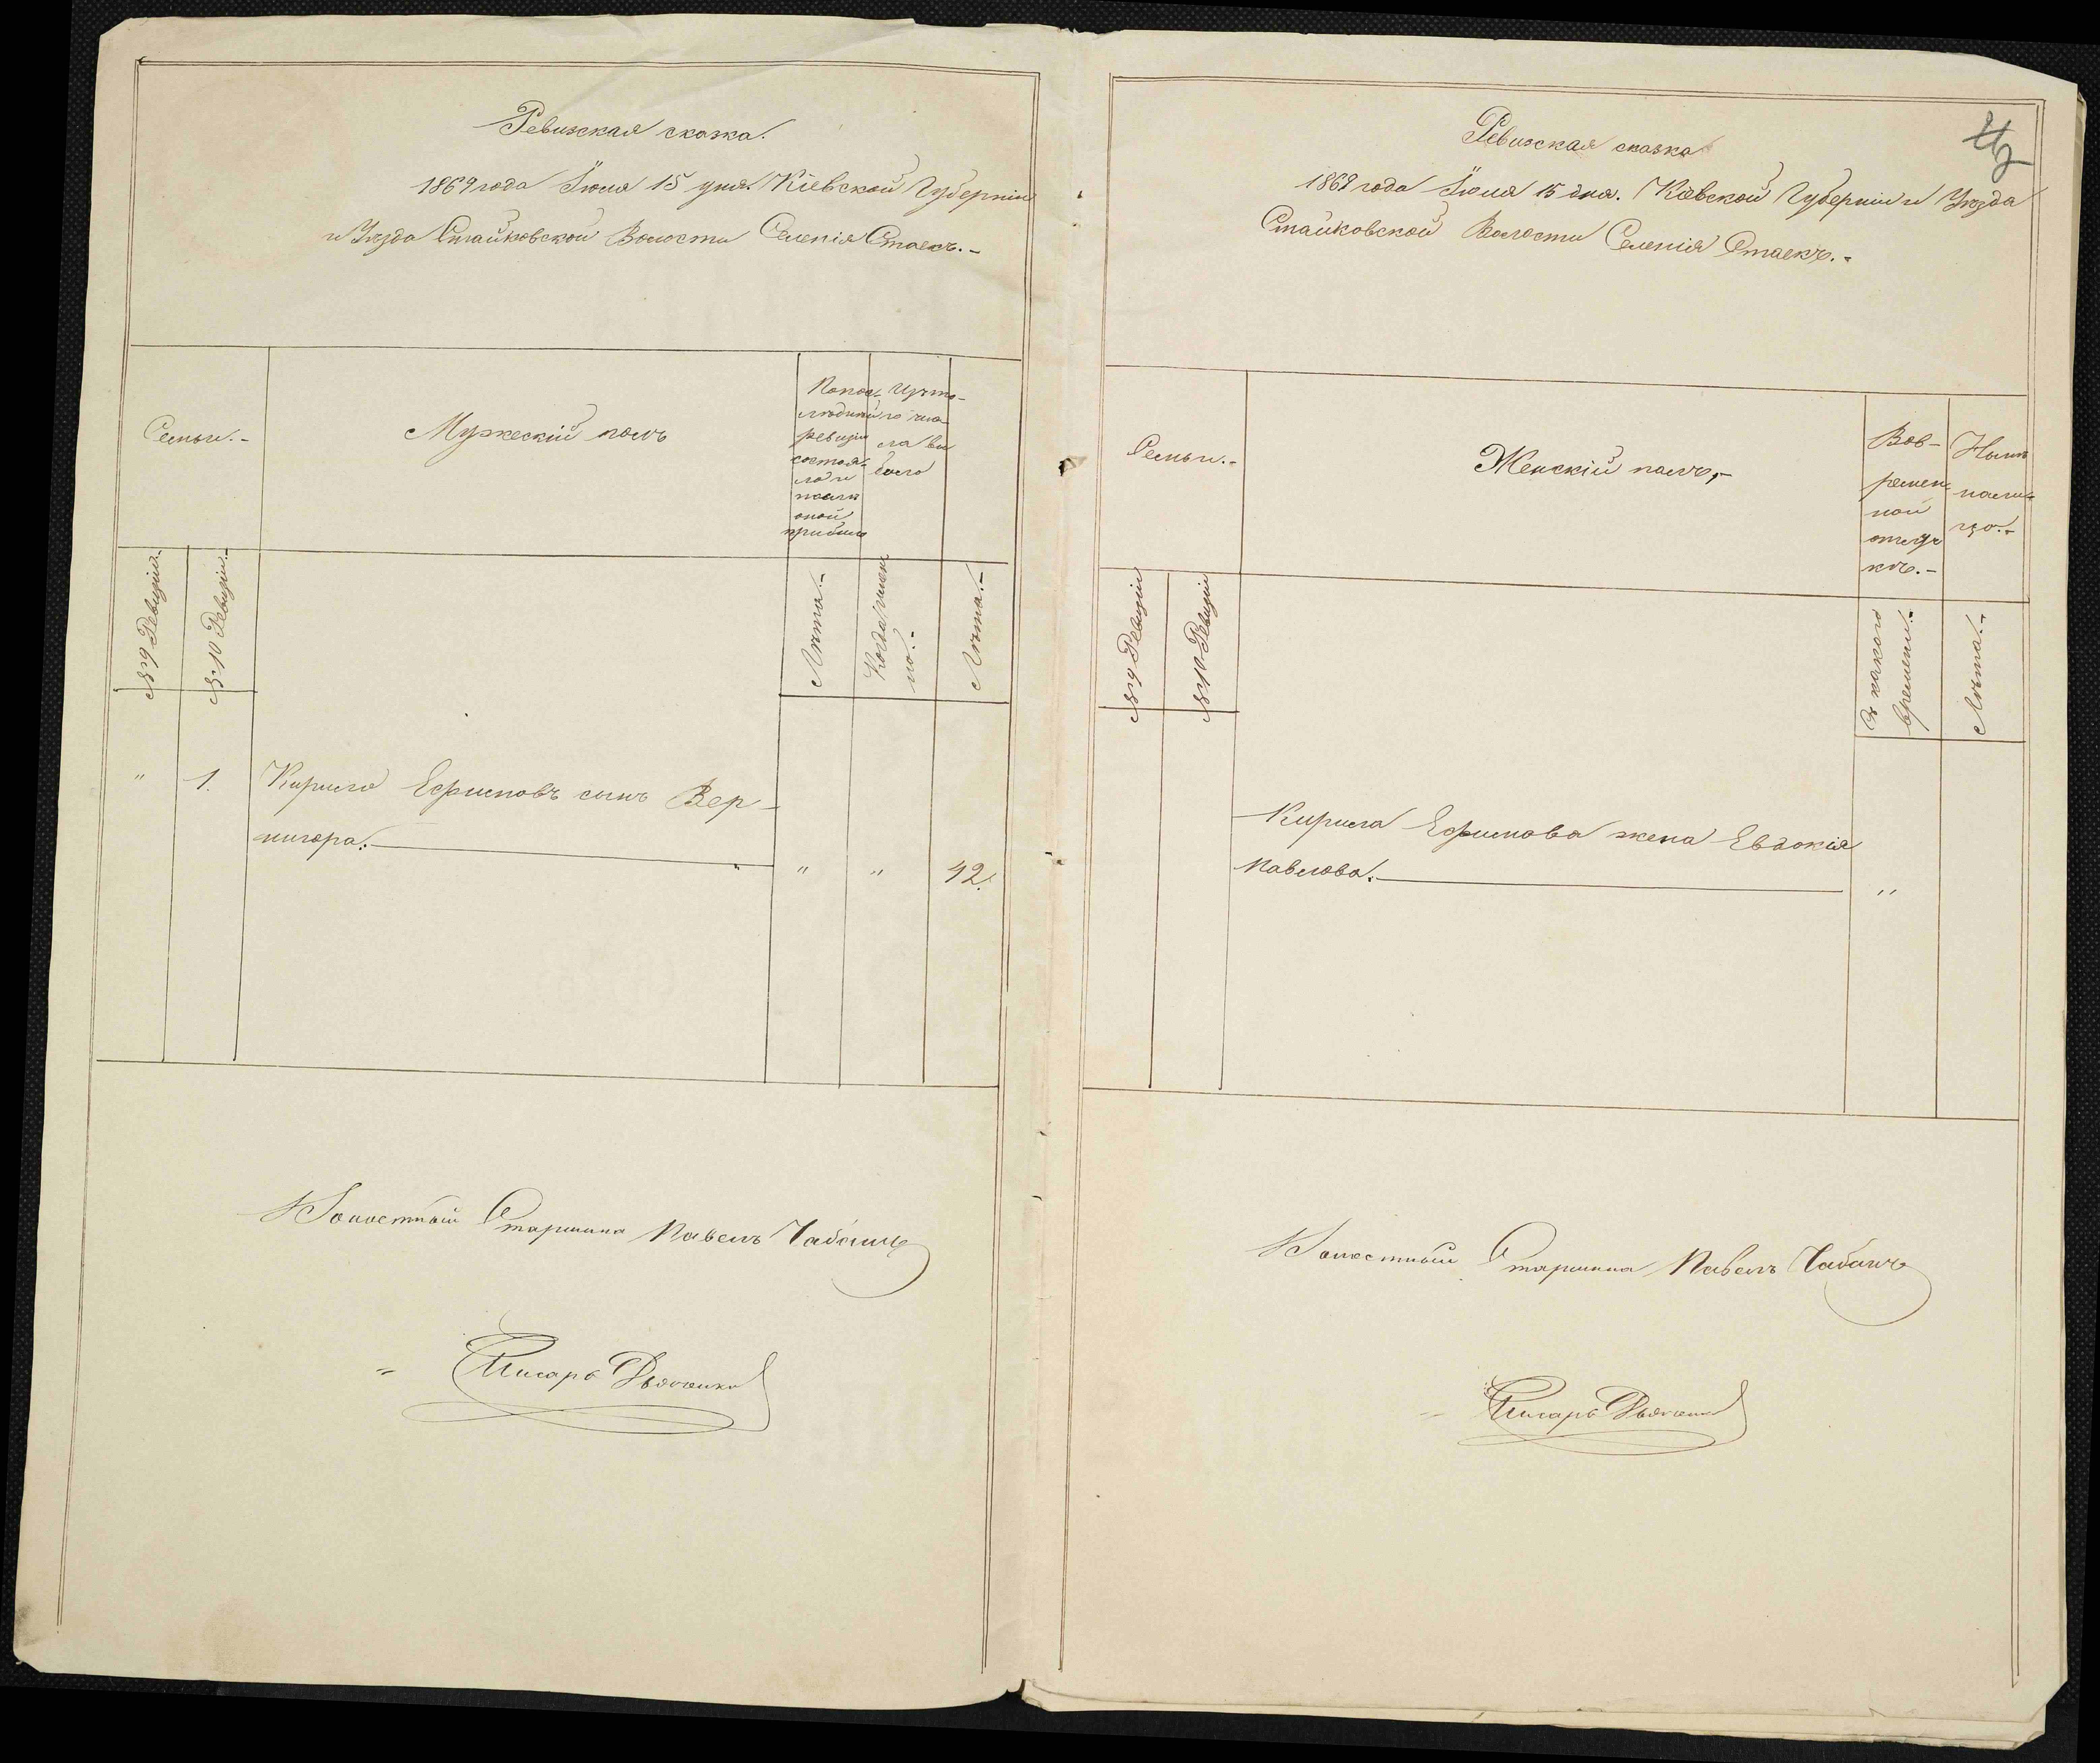 Ревизская сказка.
1869 года Іюля 15 дня. Кіевской Губерніи
и Уѣзда Стайковской Волости Селенія Стаекъ.-
Семьи.-
Мужескій полъ
По пос-
лѣдней
ревизіи
состоя-
ло и
послѣ
оной
прибыло
Изъ то-
го чис-
ла вы
было
№ 9 Ревизіи.
№ 10 Ревизіи.
Лѣта.-
Когда имен
но.-
Лѣта.-
" 1. Кирило Ефимовъ сынъ Вер-
нигора. " " 42.
Волостный Старшина Павелъ Чабанъ
Писарь Дьяченко
Ревизская сказка
1869 года Іюля 15 дня. Кіевской Губерніи и Уѣзда
Стайковской Волости Селенія Стаекъ.-
Семьи.-
Женскій полъ,-
Вов-
ремен-
ной
отлуч
кѣ.-
Нынѣ
на ли-
цо.-
№ 9 Ревизіи
№ 10 Ревизіи
Съ какого
времени.-
Лѣта.-
Кирила Ефимова жена Евдокія
Павлова. "
Волостный Старшина Павелъ Чабанъ
Писарь Дьяченко